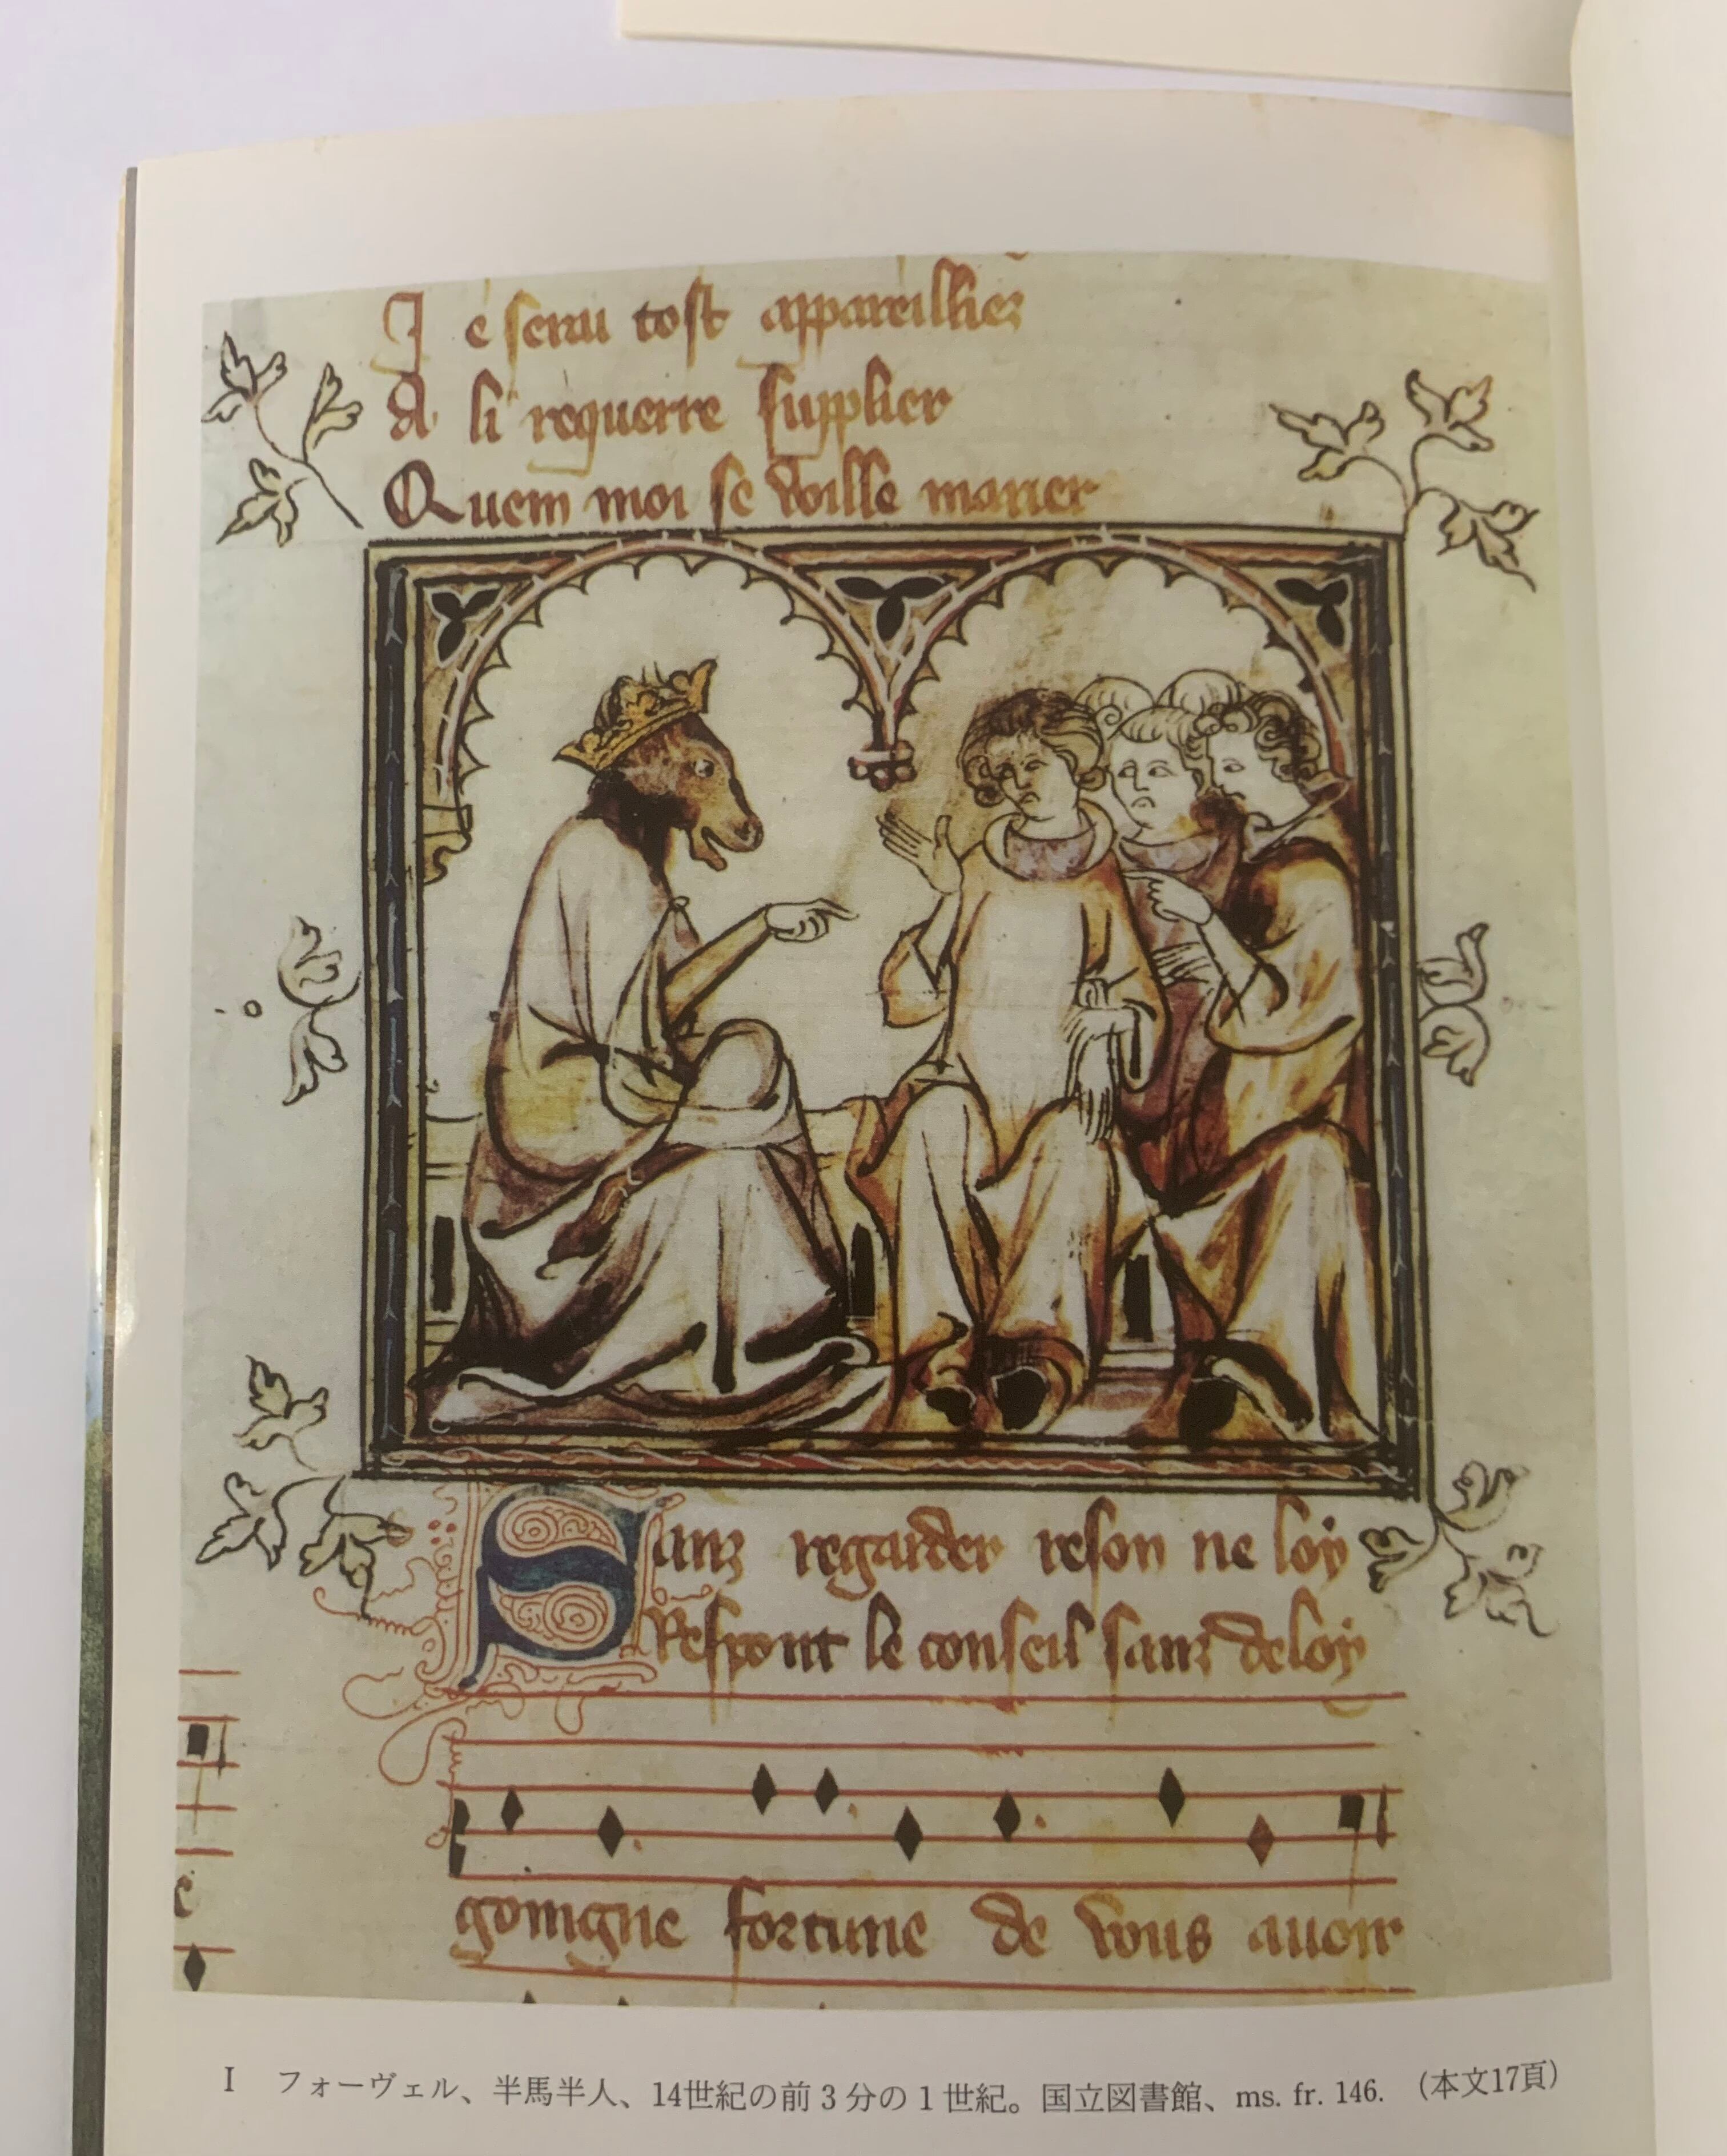 Je serai tost appareilliez
A li requerre supplier
Quem moi se voille marier
Sanz regarder reson ne loy
Respont le conseil sanz deloy
goingne fortune de vous auoir
I フォーヴェル、半馬半人、14世紀の前3分の1世紀。国立図書館、ms. fr. 146. (本文17頁)